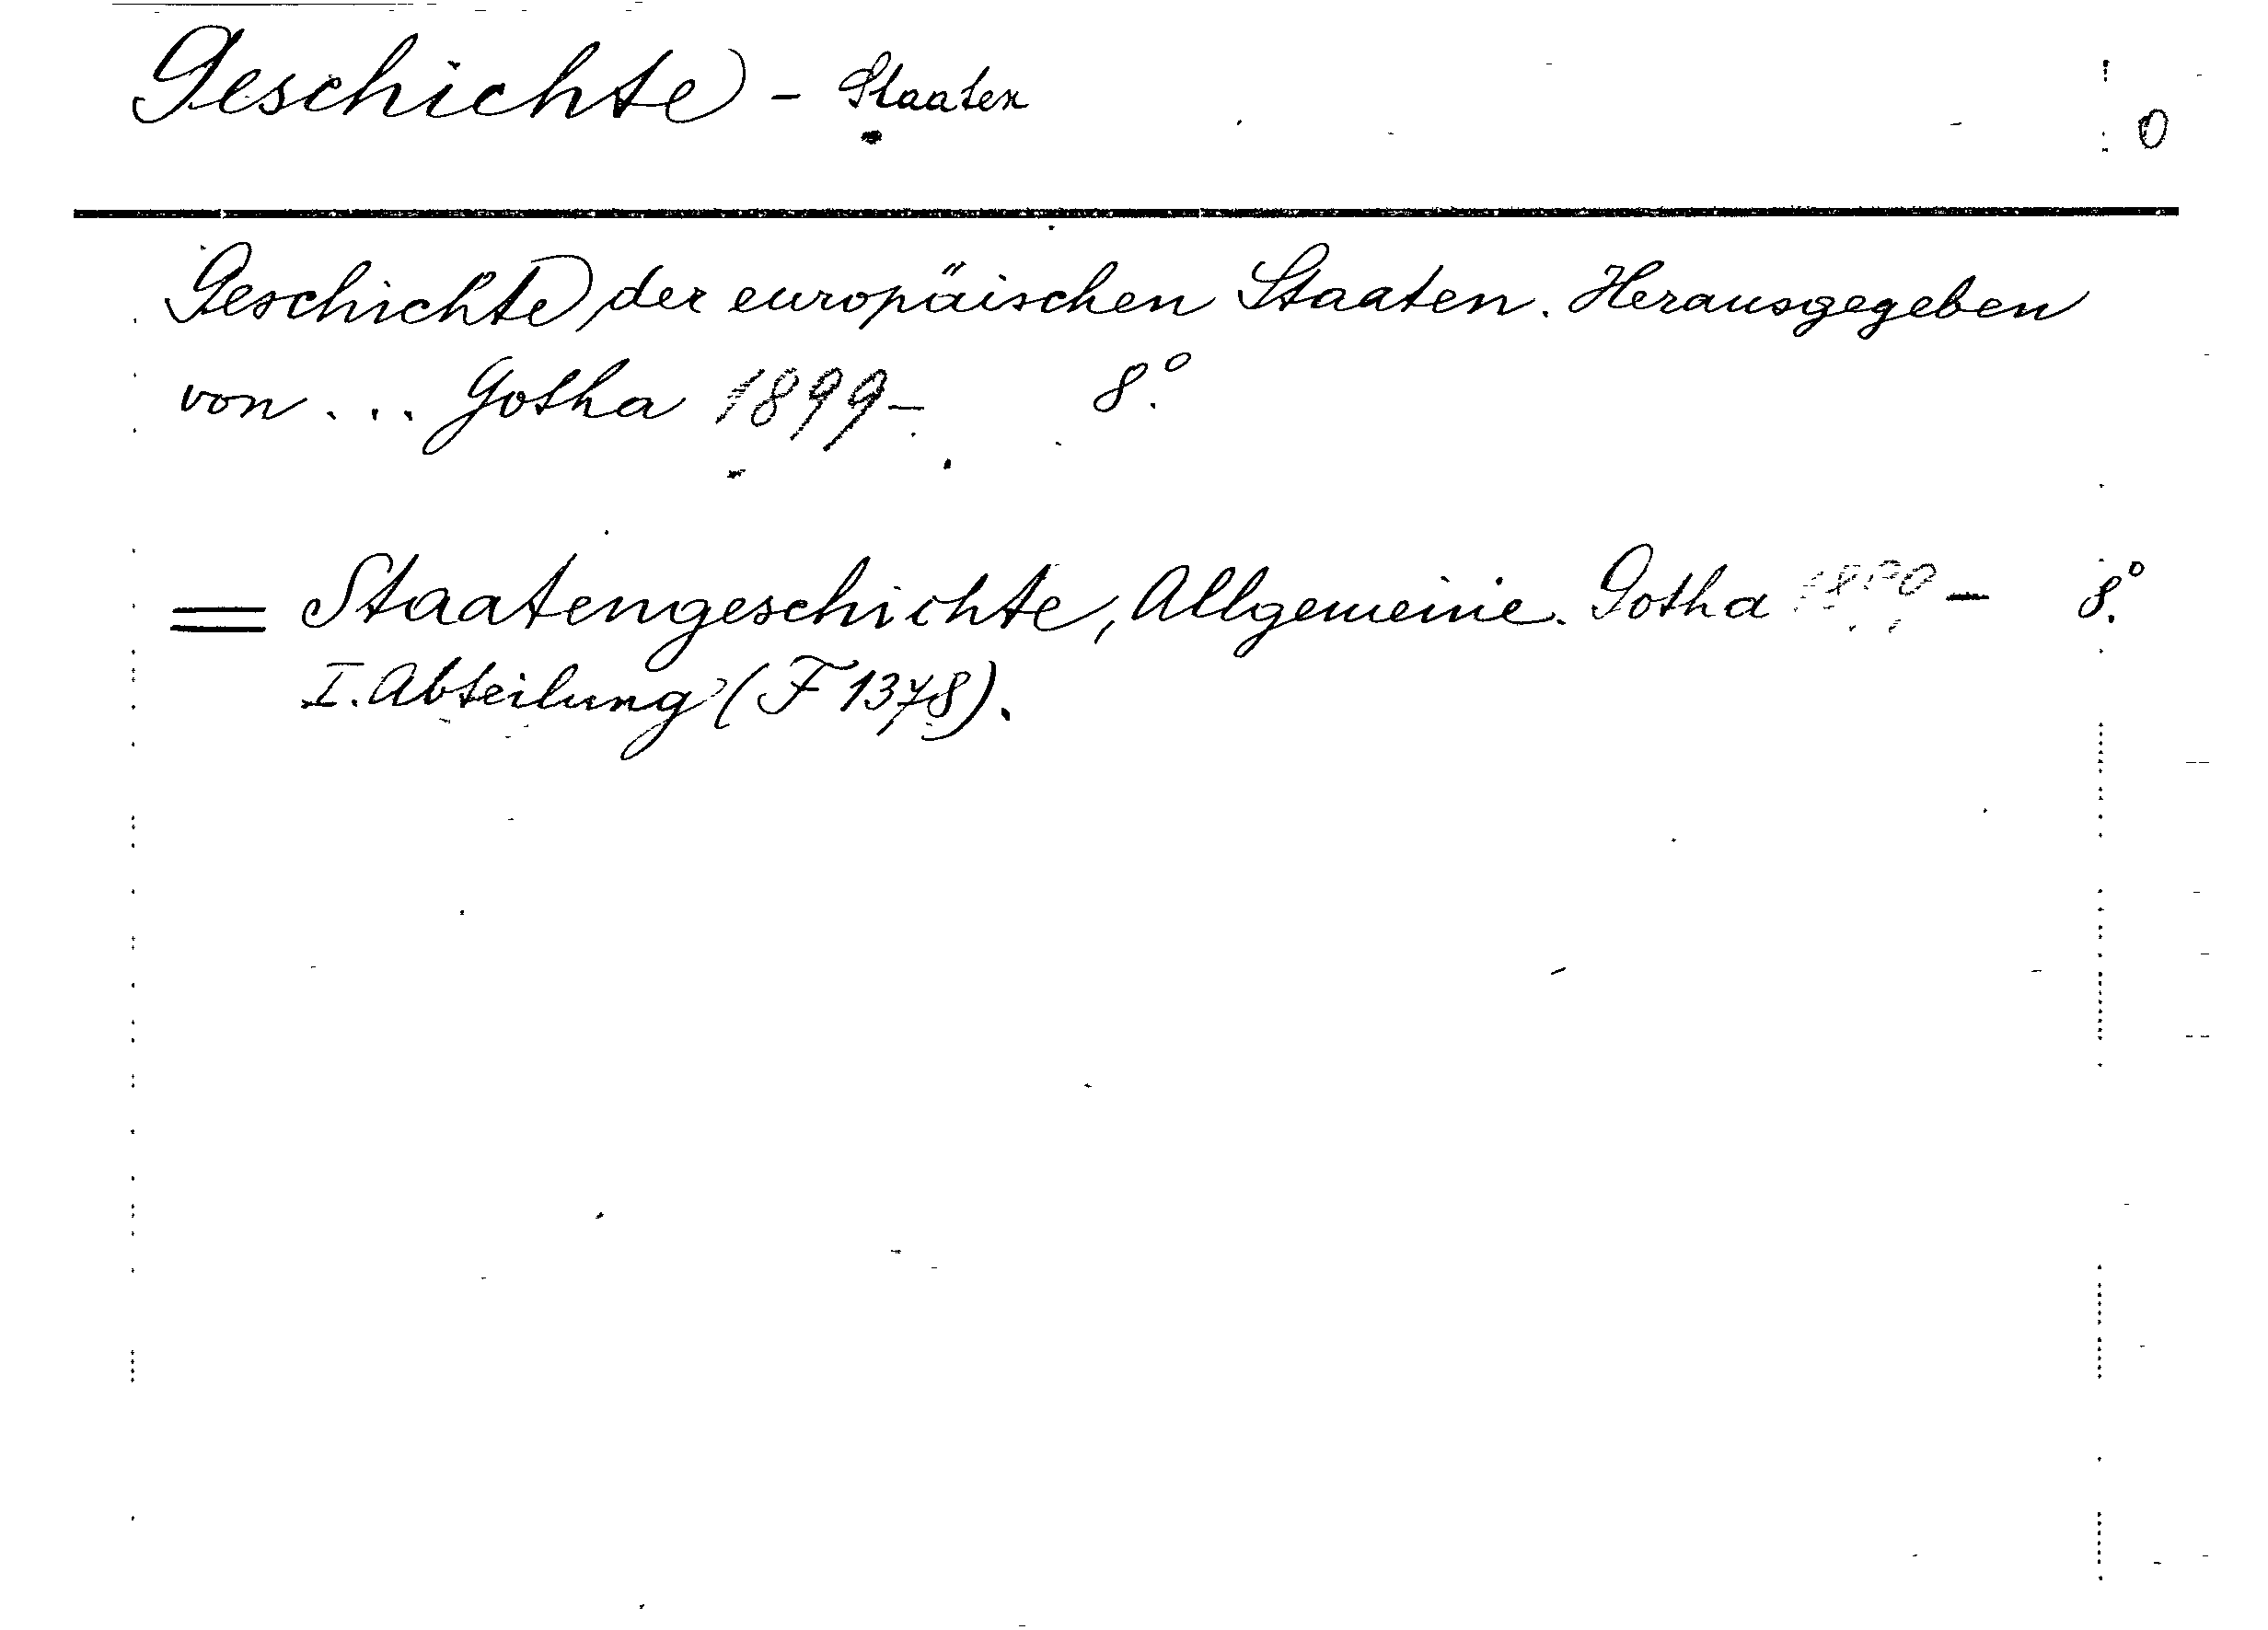 Geschichte - Staaten
0
Geschichte der europäischen Staaten. Herausgegeben
von ... Gotha 1899- 8°.
= Staatengeschichte, Allgemeine. Gotha - 8°.
I. Abteilung (F 1378).